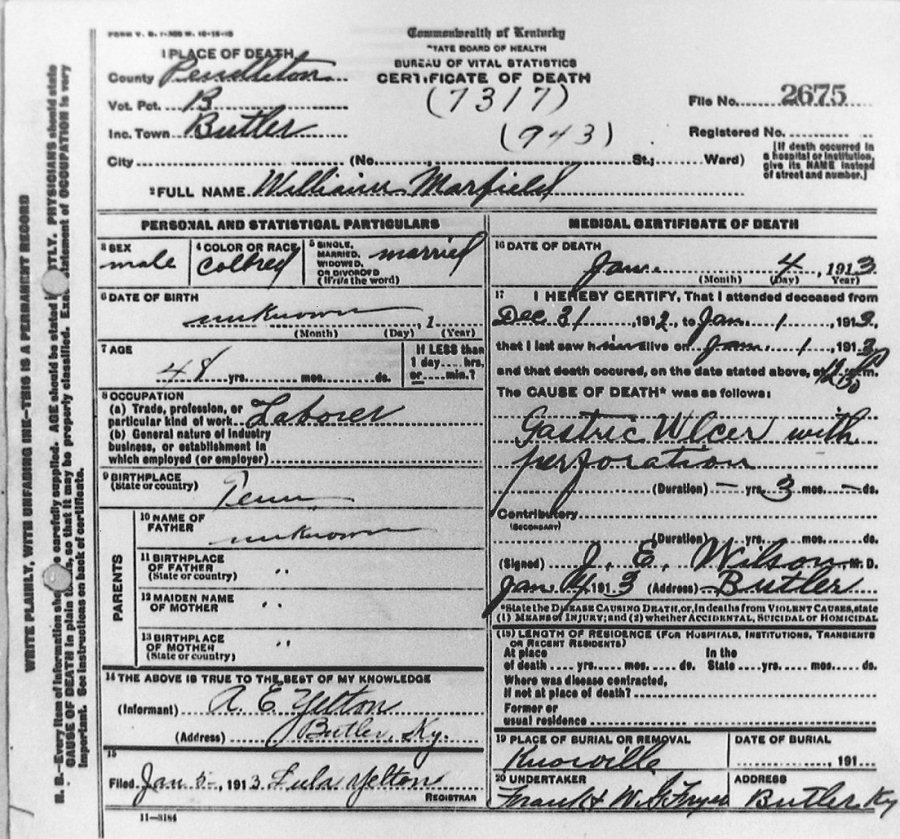 FORM V. S. 1-300 M. 10-15-10
Commonwealth of Kentucky
STATE BOARD OF HEALTH
BUREAU OF VITAL STATISTICS
CERTIFICATE OF DEATH
(7317)
(943)
1 PLACE OF DEATH
County Pendleton
Vot. Pct. B
Inc. Town Butler
City (No. , St.; Ward)
File No. 2675
Registered No.
[If death occurred in
a hospital or institution,
give its NAME instead
of street and number.]
2 FULL NAME William Marfield
PERSONAL AND STATISTICAL PARTICULARS
3 SEX
male
4 COLOR OR RACE
Colored
5 SINGLE,
MARRIED,
WIDOWED,
OR DIVORCED
(Write the word)
married
6 DATE OF BIRTH
unknown , 1
(Month) (Day) (Year)
7 AGE
48 yrs. mos. ds.
If LESS than
1 day.... hrs.
or.... min.?
8 OCCUPATION
(a) Trade, profession, or
particular kind of work Laborer
(b) General nature of industry
business, or establishment in
which employed (or employer)
9 BIRTHPLACE
(State or country) Tenn
PARENTS
10 NAME OF
FATHER unknown
11 BIRTHPLACE
OF FATHER "
(State or country)
12 MAIDEN NAME
OF MOTHER "
13 BIRTHPLACE
OF MOTHER "
(State or country)
14 THE ABOVE IS TRUE TO THE BEST OF MY KNOWLEDGE
(Informant) A. E. Yelton
(Address) Butler, Ky.
15
Filed Jan 5-, 1913 Lula Yelton
REGISTRAR
11—3184
MEDICAL CERTIFICATE OF DEATH
16 DATE OF DEATH
Jan. 4, 1913
(Month) (Day) (Year)
17 I HEREBY CERTIFY, That I attended deceased from
Dec 31 1912, to Jan. 1, 1913,
that I last saw him alive on Jan. 1, 1913
and that death occured, on the date stated above, at m.
The CAUSE OF DEATH* was as follows:
Gastric Ulcer with
perforation
(Duration) — yrs. 3 mos. — ds.
Contributory
(SECONDARY)
(Duration) yrs. mos. ds.
(Signed) J. E. Wilson M. D.
Jan. 4 1913 (Address) Butler
*State the DISEASE CAUSING DEATH, or, in deaths from VIOLENT CAUSES, state
(1) MEANS OF INJURY; and (2) whether ACCIDENTAL, SUICIDAL or HOMICIDAL
(18) LENGTH OF RESIDENCE (FOR HOSPITALS, INSTITUTIONS, TRANSIENTS
OR RECENT RESIDENTS)
At place In the
of death yrs. mos. ds. State yrs. mos. ds.
Where was disease contracted,
if not at place of death?
Former or
usual residence
19 PLACE OF BURIAL OR REMOVAL
Knoxville
DATE OF BURIAL
, 191
20 UNDERTAKER
Frank & W. G. Fryer
ADDRESS
Butler Ky
WRITE PLAINLY, WITH UNFADING INK—THIS IS A PERMANENT RECORD
N. B.—Every item of information carefully supplied. AGE should be stated PHYSICIANS should state
CAUSE OF DEATH in plain so that it may be properly classified. statement of OCCUPATION is very
important. See instructions on back of certificate.